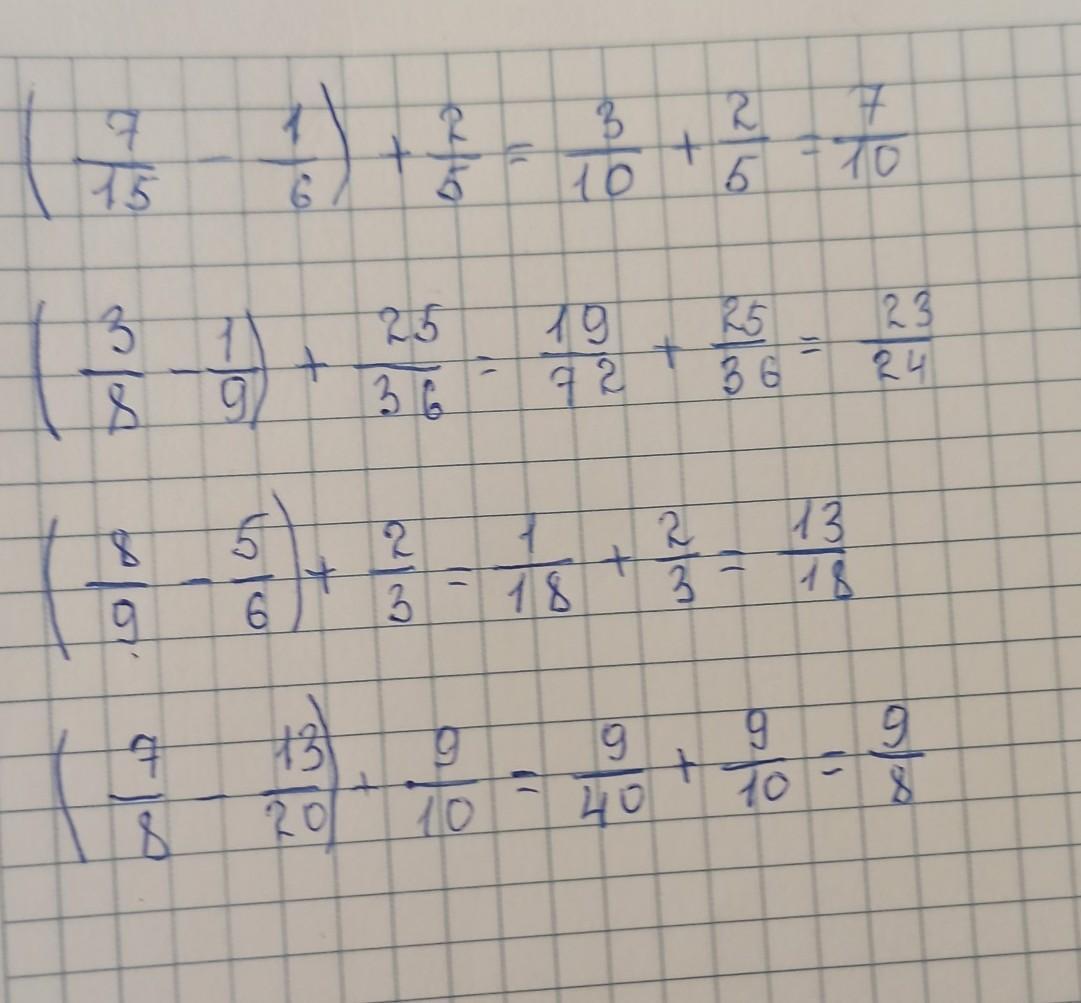 (7/15 - 1/6) + 2/5 = 3/10 + 2/5 = 7/10
(3/8 - 1/9) + 25/36 = 19/72 + 25/36 = 23/24
(8/9 - 5/6) + 2/3 = 1/18 + 2/3 = 13/18
(7/8 - 13/20) + 9/10 = 9/40 + 9/10 = 9/8